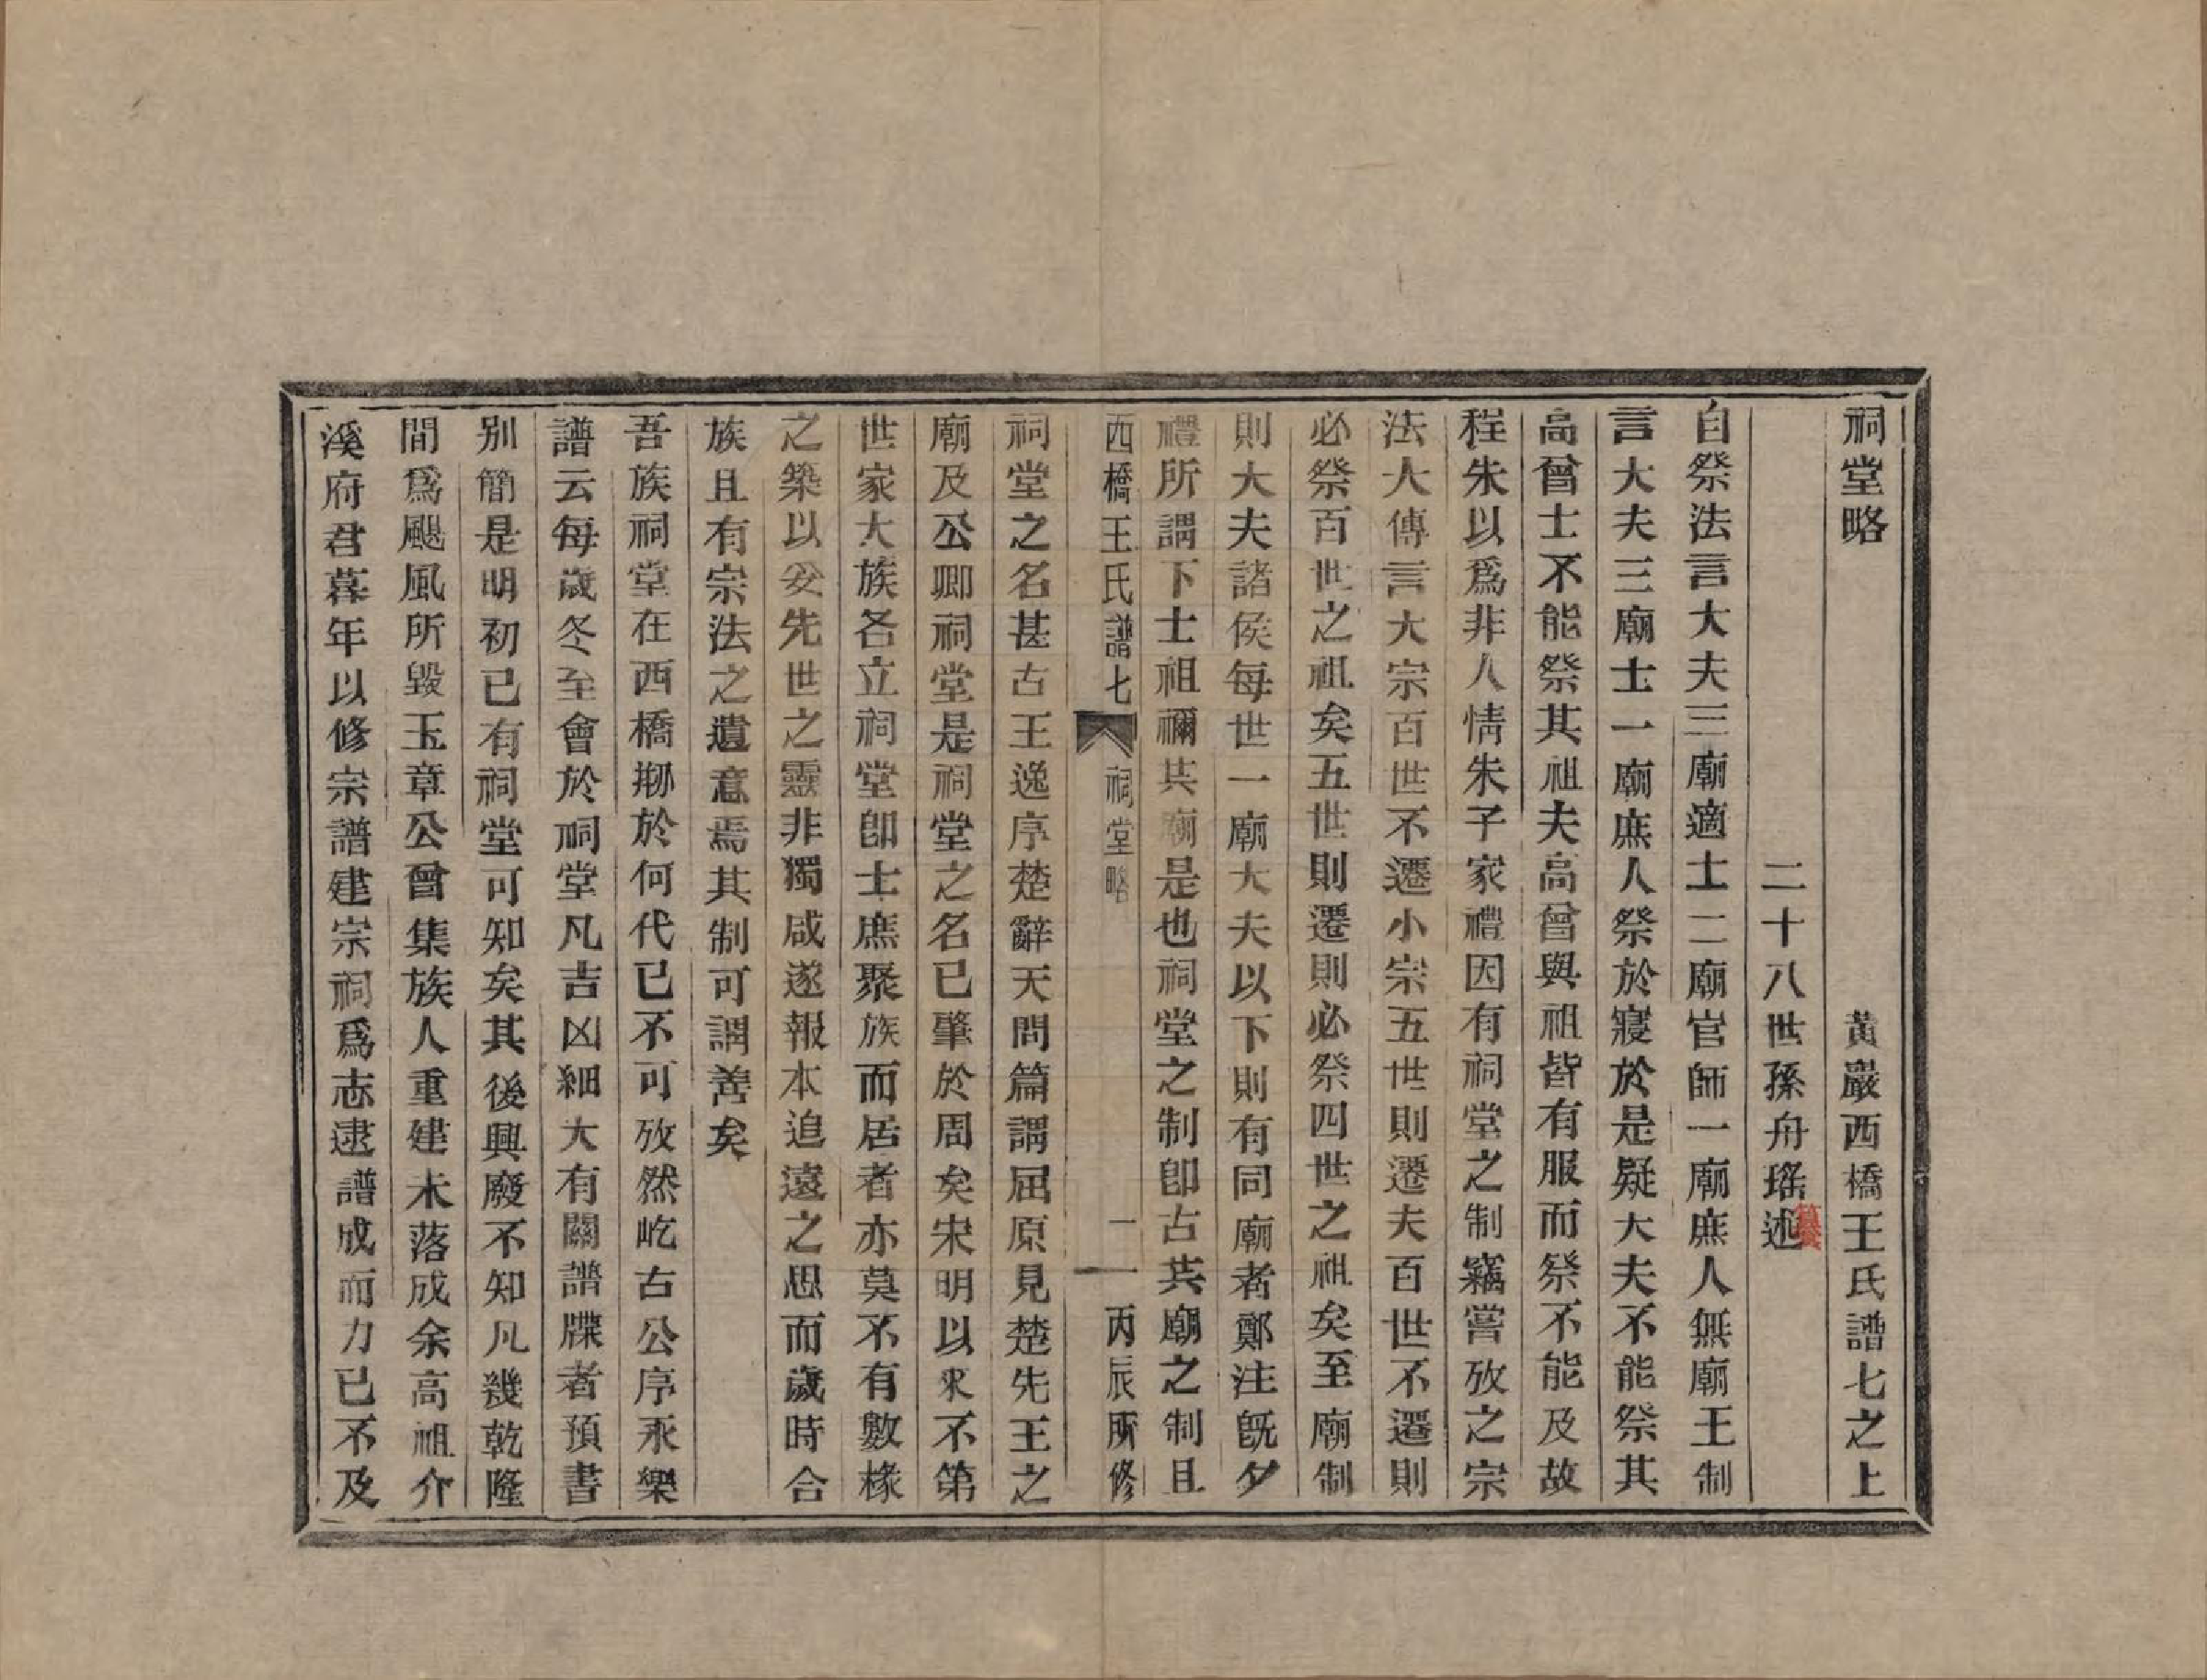 祠堂略　黃巖西橋王氏譜七之上
二十八世孫舟瑤述
纂
自祭法言大夫三廟適士二廟官師一廟庶人無廟王制
言大夫三廟士一廟庶人祭於寢於是疑大夫不能祭其
高曾士不能祭其祖夫高曾與祖皆有服而祭不能及故
程朱以爲非人情朱子家禮因有祠堂之制竊嘗攷之宗
法大傳言大宗百世不遷小宗五世則遷夫百世不遷則
必祭百世之祖矣五世則遷則必祭四世之祖矣至廟制
則大夫諸侯每世一廟大夫以下則有同廟者鄭注旣夕
禮所謂下士祖禰共廟是也祠堂之制卽古共廟之制且
西橋王氏譜七　祠堂略　一　丙辰所修
祠堂之名甚古王逸序楚辭天問篇謂屈原見楚先王之
廟及公卿祠堂是祠堂之名已肇於周矣宋明以來不第
世家大族各立祠堂卽士庶聚族而居者亦莫不有數椽
之築以妥先世之靈非獨咸遂報本追遠之思而歲時合
族且有宗法之遺意焉其制可謂善矣
吾族祠堂在西橋刱於何代已不可攷然屹古公序永樂
譜云每歲冬至會於祠堂凡吉凶細大有關譜牒者預書
別簡是明初已有祠堂可知矣其後興廢不知凡幾乾隆
間爲颶風所毀玉章公曾集族人重建未落成余高祖介
溪府君暮年以修宗譜建宗祠爲志逮譜成而力已不及